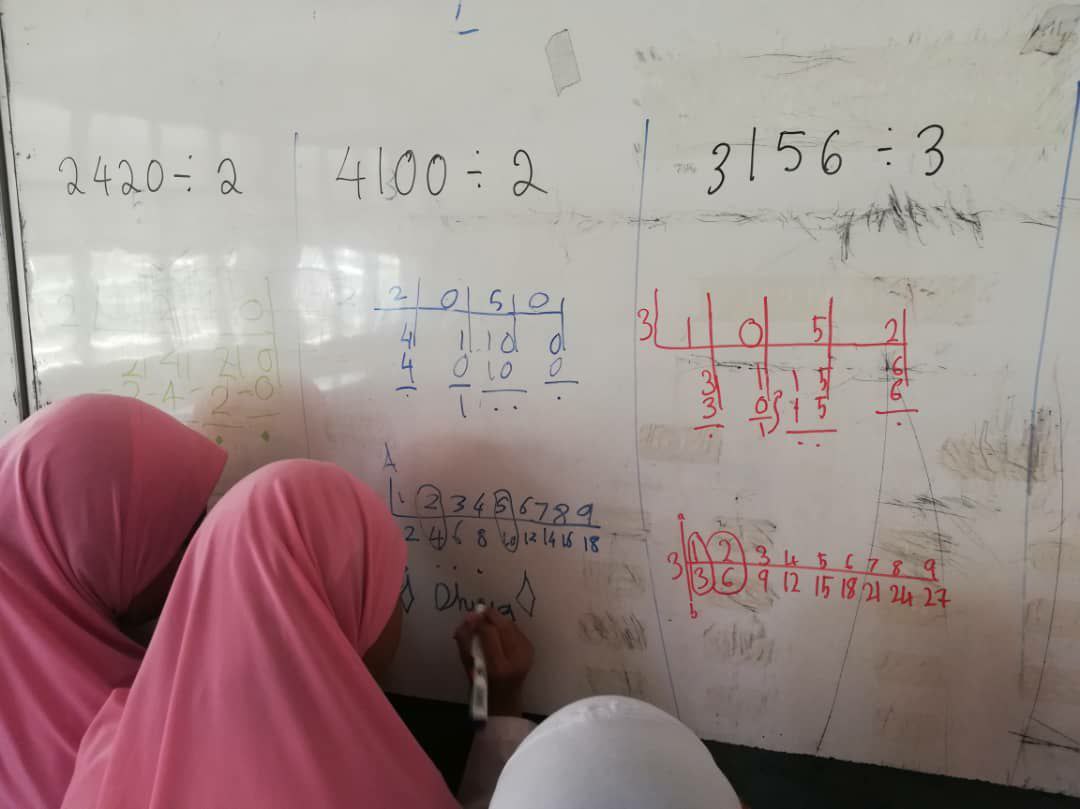 2420 ÷ 2
4100 ÷ 2
3156 ÷ 3
2 0 5 0
4 1 10 0
4 0 10 0
1
3 1 0 5 2
3 1 15 6
3 0 15 6
1
A
1 2 3 4 5 6 7 8 9
2 4 6 8 10 12 14 16 18
a
3 1 2 3 4 5 6 7 8 9
3 6 9 12 15 18 21 24 27
b